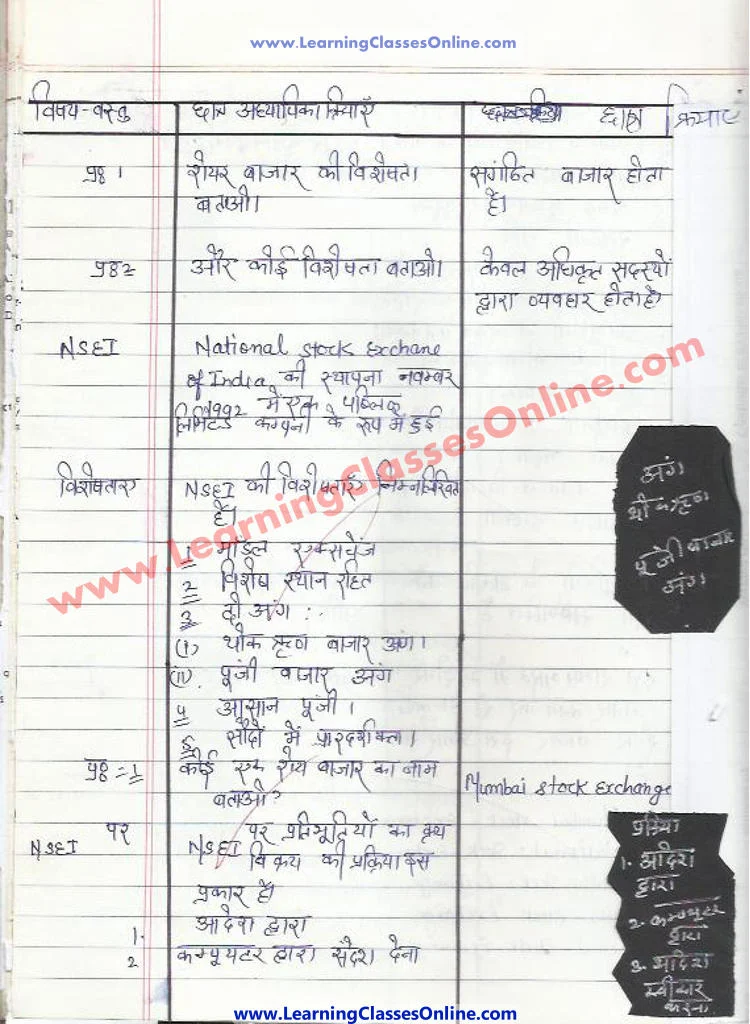 www.LearningClassesOnline.com
विषय-वस्तु छात्र अध्यापिका क्रियाएँ छात्र क्रियाएं
प्रश्न 1 शेयर बाजार की विशेषता संगठित बाजार होता
बताओ। है।
प्रश्न 2 और कोई विशेषता बताओ। केवल अधिकृत सदस्यों
द्वारा व्यवहार होता है
NSEI National stock Exchane
of India की स्थापना नवम्बर
1992 में एक पब्लिक
लिमिटेड कम्पनी के रूप में हुई
विशेषताए NSEI की विशेषताएँ निम्नलिखित
है।
1 मॉडल एक्सचेंज
2 विशेष स्थान रहित
3 दो अंग :-
(i) थोक ऋण बाजार अंग।
(ii) पूंजी बाजार अंग
4 आसान पूंजी।
5 सौदों में पारदर्शीक्ता।
अंग
थोक ऋण
पूंजी बाजार
अंग
प्रश्न =1 कोई एक शेय बाजार का नाम Mumbai stock Exchange
बताओ?
NSEI पर NSEI पर प्रतिभूतियों का क्रय
विक्रय की प्रक्रिया इस
प्रकार है।
1. आदेश द्वारा
2 कम्प्यूटर द्वारा संदेश देना
प्रक्रिया
1. आदेश
द्वारा
2. कम्प्यूटर
द्वारा
3. आदेश
स्वीकार
करना
www.LearningClassesOnline.com
www.LearningClassesOnline.com